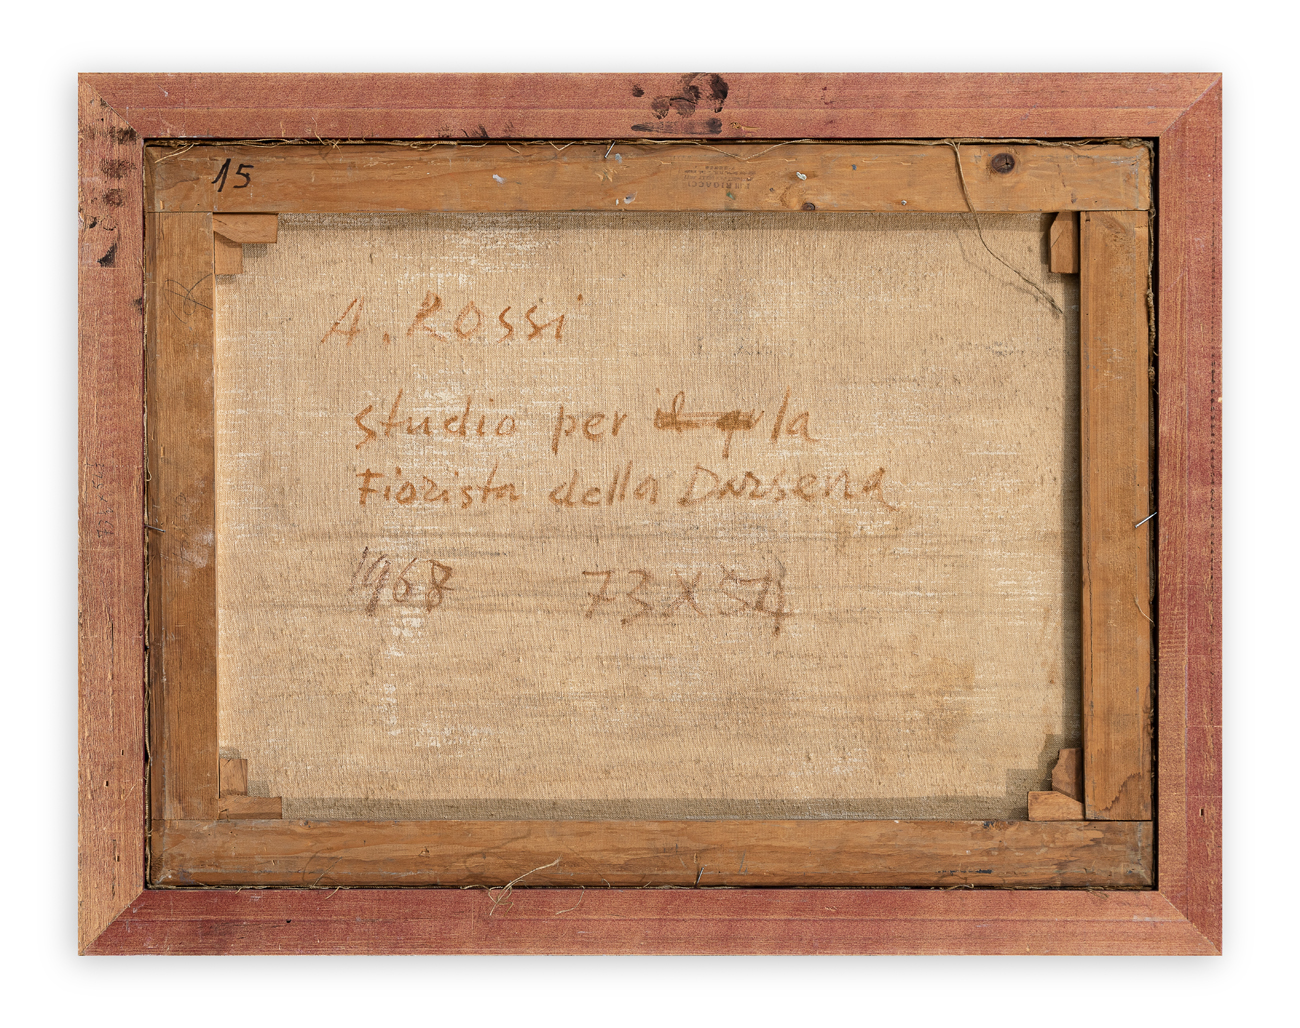 15
A. ROSSI
studio per il qr la
Fiorista della Darsena
1968 73X54